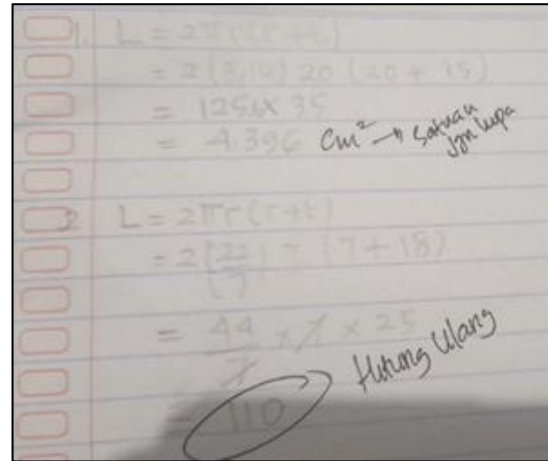 1. L = 2πr(r+t)
= 2 (3,14) 20 (20 + 15)
= 125,6 x 35
= 4.396 Cm² → Satuan jgn lupa
2 L = 2πr(r+t)
= 2 (22/7) 7 (7 + 18)
= 44/7 x 7 x 25
= 110 Hitung Ulang